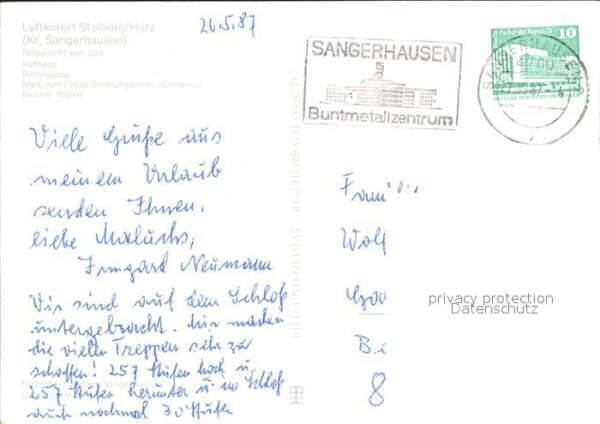 Luftkurort Stolberg/Harz
(Kr. Sangerhausen)
Teilansicht von Süd
Rathaus
Rittergasse
Blick zum FDGB-Erholungsheim „Comenius“
Reicher Winkel
26.5.87
SANGERHAUSEN
Buntmetallzentrum
10
SANGERHAUSEN
4700
Viele Grüße aus
meinem Urlaub
senden Ihnen,
liebe
Irmgard Neumann
Wir sind auf dem Schloß
untergebracht. Mir machen
die vielen Treppen sehr zu
schaffen! 257 Stufen hoch u.
257 Stufen herunter u. im Schloß
auch nochmal 30 Stufen
Fami
Wolf
privacy protection
Datenschutz
8